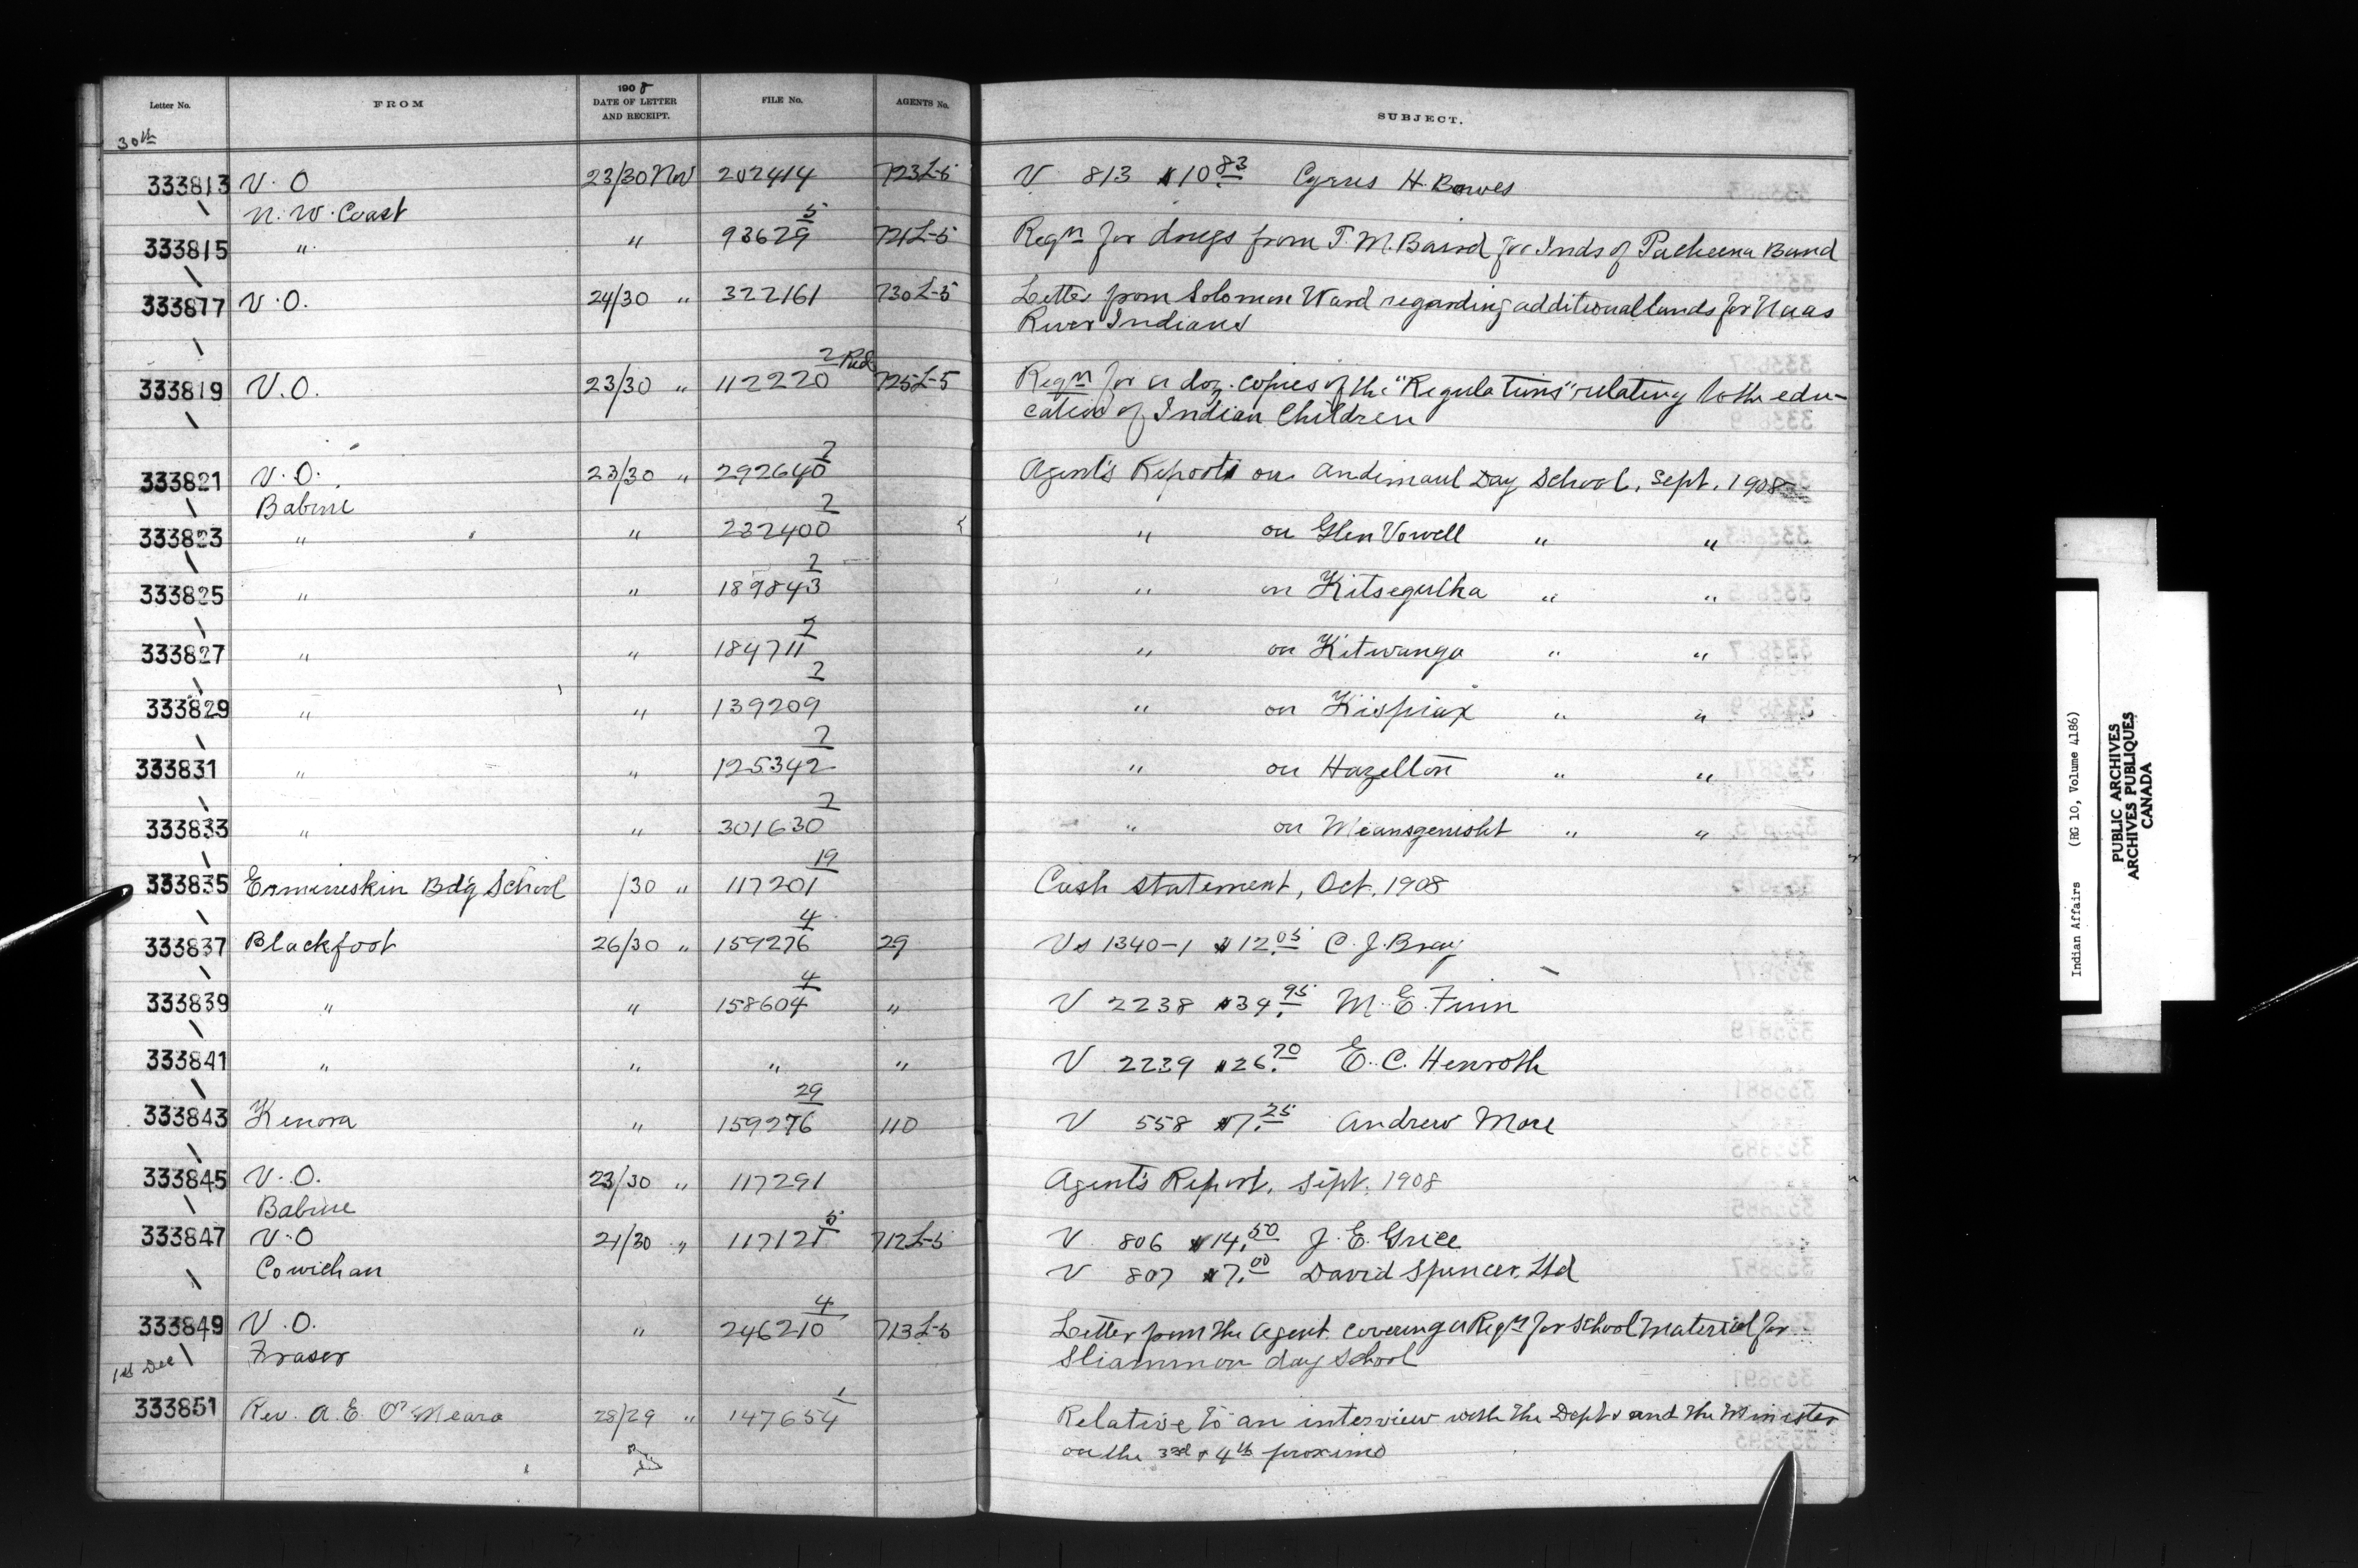 Letter No. FROM 1908 DATE OF LETTER AND RECEIPT. FILE No. AGENTS No. SUBJECT.
30th
333813 V. O 23/30 Nov 202414 723L-5 V 813 $10.83 Cyrus H. Bowes
N. W. Coast
333815 " " 93629 5 721L-5 Reqn for drugs from T. M. Baird for Inds of Pacheena Band
333877 V. O. 24/30 " 322161 730L-5 Letter from Solomon Ward regarding additional lands for Naas
River Indians
333819 V. O. 23/30 " 112220 2 Red 725L-5 Reqn for a doz. copies of the "Regulations" relating to the edu-
cation of Indian Children
333821 V. O. 23/30 " 292640 2 Agent's Reports on Andimaul Day School, Sept. 1908
Babine
333823 " " 232400 2 " on Glen Vowell " "
333825 " " 189843 2 " on Kitsegutha " "
333827 " " 184711 2 " on Kitwanga " "
333829 " " 139209 2 " on Kispiax " "
333831 " " 125342 2 " on Hazelton " "
333833 " " 301630 2 " on Meansgenisht " "
333835 Ermineskin Bd'g School /30 " 117201 19 Cash statement, Oct. 1908
333837 Blackfoot 26/30 " 159276 4 29 Vs 1340-1 $12.05 C. J. Bray
333839 " " 158604 4 " V 2238 $34.95 M. E. Finn
333841 " " " " V 2239 $26.70 E. C. Henroth
333843 Kenora " 159276 29 110 V 558 $7.25 Andrew More
333845 V. O. 23/30 " 117291 Agent's Report, Sept. 1908
Babine
333847 V. O 21/30 " 117121 5 712L-5 V 806 $14.50 J. E. Grice
Cowichan V 807 $7.00 David Spencer, Ltd
333849 V. O. " 246210 4 713L-5 Letter from the Agent covering a Reqn for school material for
Fraser Sliammon day school
1st Dec
333851 Rev. A. E. O'Meara 28/29 " 147654 1 Relative to an interview with the Dept and the Minister
on the 3rd & 4th proximo
Indian Affairs (RG 10, Volume 4186)
PUBLIC ARCHIVES
ARCHIVES PUBLIQUES
CANADA